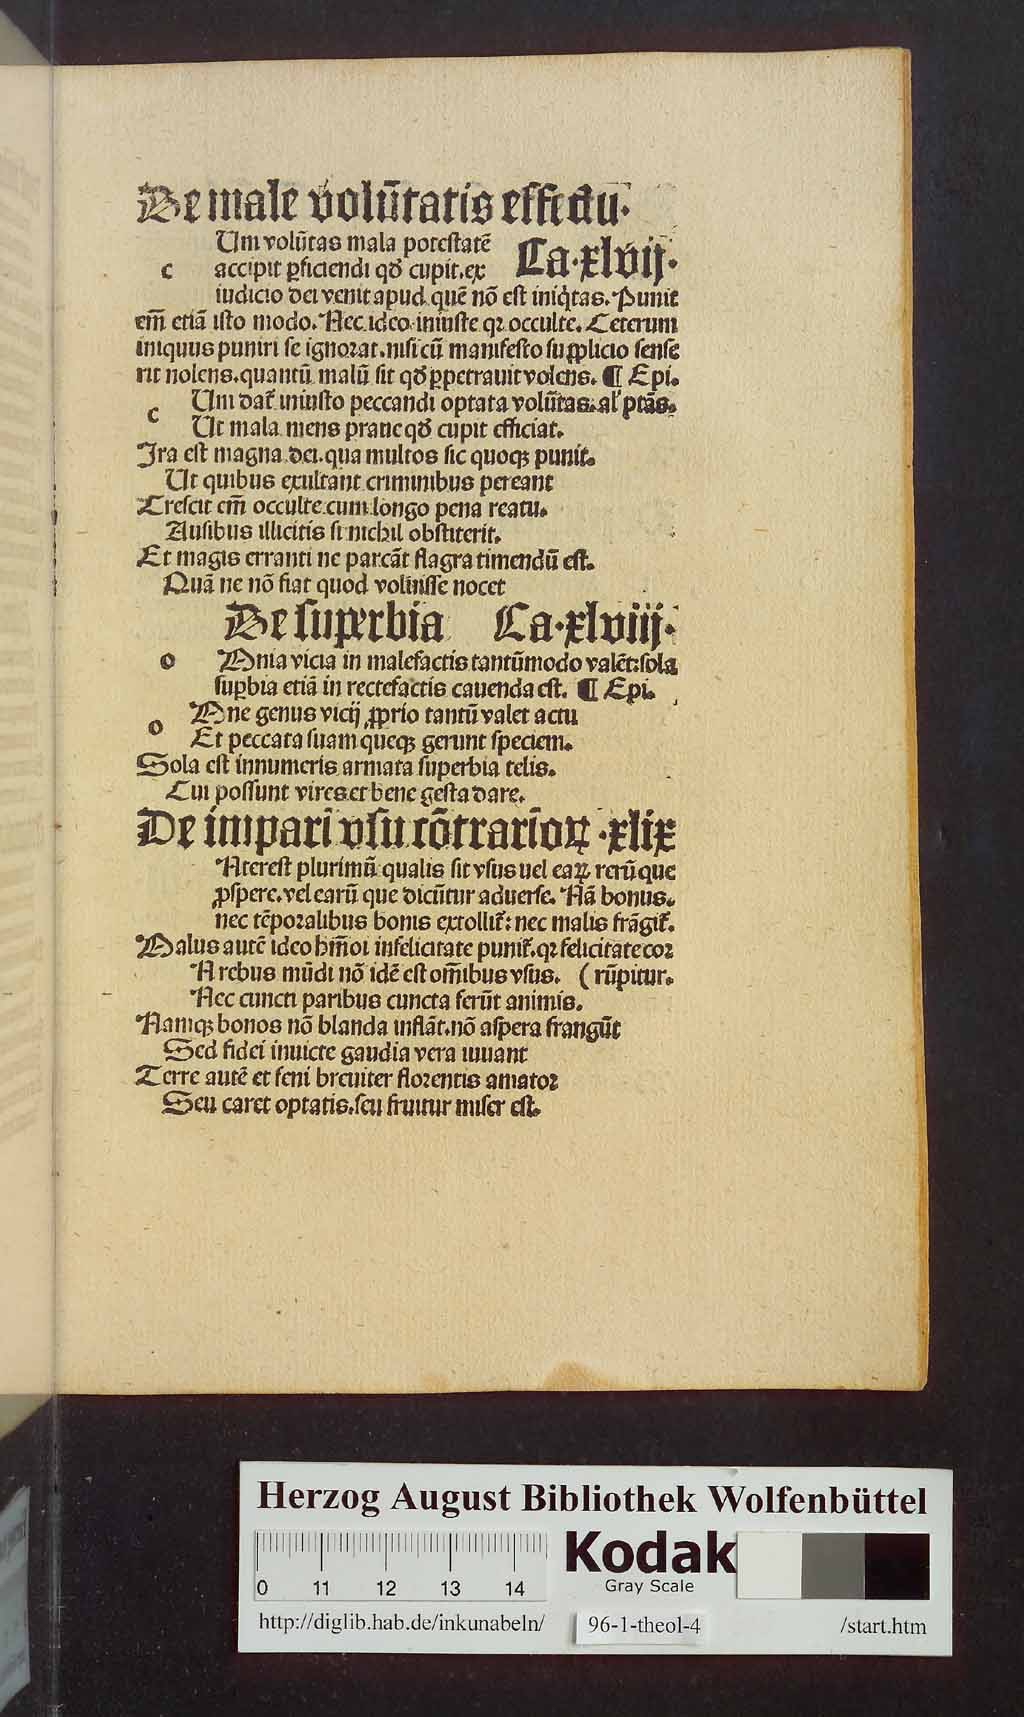 De male volūtatis effectu.
Um volūtas mala potestatē Ca.xlvij.
c accipit ꝑficiendi qd̄ cupit.ex
iudicio dei venit apud quē nō est iniq̇tas. Punit
em̄ etiā isto modo. Nec ideo iniuste qꝛ occulte. Ceterum
iniquus puniri se ignorat.nisi cū manifesto supplicio sense
rit nolens.quantū malū sit qd̄ ꝑpetrauit volens. ¶ Epi.
c Um dat᷑ iniusto peccandi optata volūtas.al' ptās.
Ut mala mens praue qd̄ cupit efficiat.
Ira est magna dei.qua multos sic quoqꝫ punit.
Ut quibus exultant criminibus pereant
Crescit em̄ occulte cum longo pena reatu.
Ausibus illicitis si nichil obstiterit.
Et magis erranti ne parcāt flagra timendū est.
Quā ne nō fiat quod voluisse nocet
De superbia Ca.xlviij.
o Mnia vicia in malefactis tantūmodo valēt:sola
suꝑbia etiā in rectefactis cauenda est. ¶ Epi.
o Mne genus vicij ꝓprio tantū valet actu
Et peccata suam queqꝫ gerunt speciem.
Sola est innumeris armata superbia telis.
Cui possunt vires et bene gesta dare.
De impari vsu cōtrarioꝝ .xlix
Nterest plurimū qualis sit vsus uel eaꝝ rerū que
ꝓspere.vel earū que dicūtur aduerse. Nā bonus.
nec tēporalibus bonis extollit᷑: nec malis frāgit᷑.
Malus autē ideo hm̄oi infelicitate punit᷑.qꝛ felicitate cor
N rebus mūdi nō idē est om̄ibus vsus. (rūpitur.
Nec cuncti paribus cuncta ferūt animis.
Namqꝫ bonos nō blanda inflāt.nō aspera frangūt
Sed fidei inuicte gaudia vera iuuant
Terre autē et feni breuiter florentis amator
Seu caret optatis.seu fruitur miser est.
Herzog August Bibliothek Wolfenbüttel
0 11 12 13 14
Kodak
Gray Scale
http://diglib.hab.de/inkunabeln/ 96-1-theol-4 /start.htm